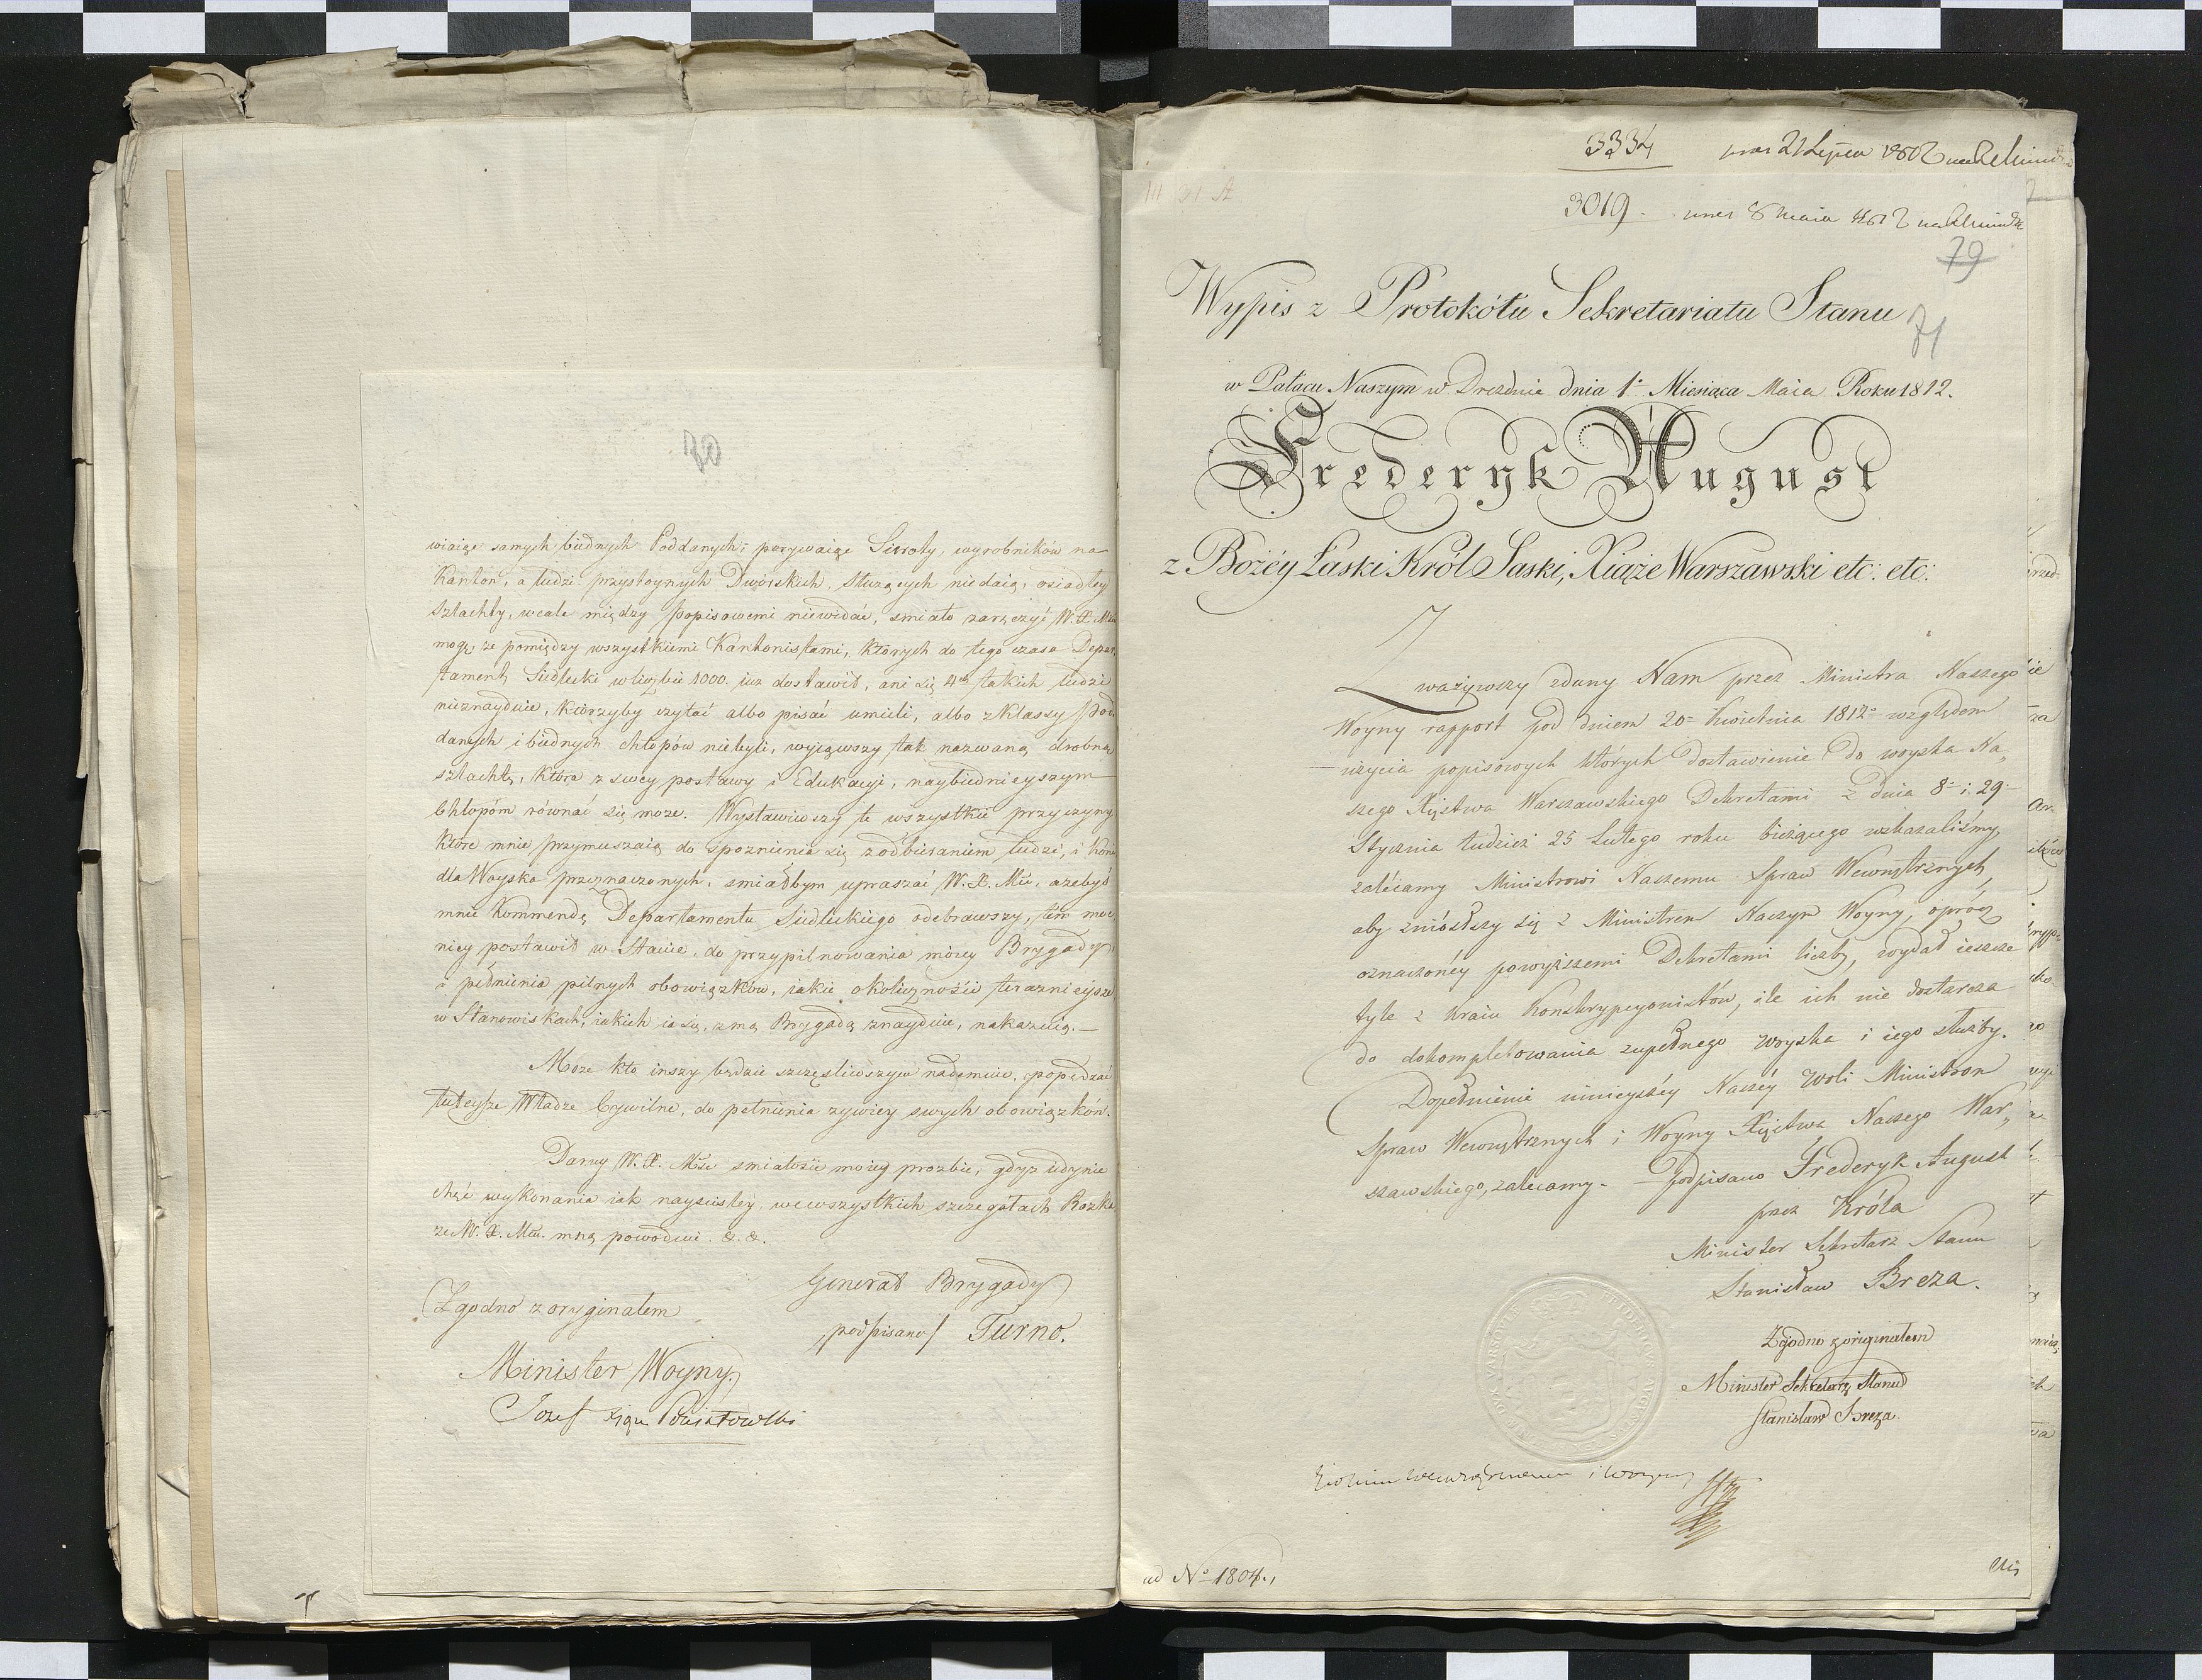 70
wiaiąc samych biednych Poddanych, porywaiąc Sieroty, wyrobników na
Kanton, a ludzi przystoynych Dworskich, służących niedaią, osiadłey
Szlachty, wcale między popisowemi niewidać, smiało zaręczyć W. X. Mci
mogę, że pomiędzy wszystkiemi Kantonistami, których do tego czasu Depar
tament Siedlecki wliczbie 1000. iuz dostawił, ani się 4ch takich ludzi
nieznayduie, którzyby czytać albo pisać umieli, albo zklassy pod
danych i biednych chłopów niebyli, wyiąwszy tak nazwaną drobną
szlachtę, która z swey postawy i Edukacyi, naybiednieyszym
Chłopóm równać się może. Wystawiwszy te wszystkie przyczyny
które mnie przymuszaią do spoznienia się zodbieraniem ludzi, i koni
dla Woyska przeznaczonych, smiałbym upraszać W. X. Mci, azebyś
mnie Kommendę Departamentu Siedleckiego odebrawszy, tém moc
niey postawił w Stanie, do przypilnowania moiey Brygady
i pełnienia pilnych obowiązków, iakie okoliczności teraznieysze
w Stanowiskach, iakich ia się, zmą Brygadą znayduie, nakazuią.—
Może kto inszy będzie szczęsliwszym nademnie, popędzać
tuteysze Władze Cywilne, do pełnienia zywiey swych obowiązków.
Daruy W. X. Mść smiałości moiey prozbie, gdyż iedynie
chęć wykonania iak nayscisley, wewszystkich szczegółach Rozka
zu W. X. Mci. mną powoduie. &. &.
Generał Brygady
Zgodno z oryginałem
podpisano/ Turno.
Minister Woyny.
Jozef Xiąże Poniatowski
3334 prws 21 Lipca
3019. prws 8 Maia
79
Wypis z Protokółu Sekretariatu Stanu
71
w Pałacu Naszym w Dreznie dnia 1º Miesiąca Maia Roku 1812.
Fryderyk August
z Bożéy Łaski Król Saski, Xiąże Warszawski etc: etc:
Zważywszy zdany Nam przez Ministra Naszego
Woyny rapport pod dniem 20º Kwietnia 1812º względem
użycia popisowych których dostawienie do woyska Na„
szego Xięstwa Warszawskiego Dekretami z dnia 8º i 29º
Stycznia tudzież 25 Lutego roku bieżącego wskazaliśmy,
zalécamy Ministrowi Naszemu Spraw Wewnętrznych,
aby zniósłszy się z Ministrem Naszym Woyny, oprócz
oznaczonéy powyższemi Dekretami liczby, wydał ieszcze
tyle z kraiu Konskrypcyonistów, ile ich nie dostarcza
do dokompletowania zupełnego woyska i iego służby.
Dopełnienie ninieyszéy Naszéy Woli Ministrom
Spraw Wewnętrznych i Woyny Xięstwa Naszego War„
szawskiego, zalecamy. — podpisano Fryderyk August
przez Króla
Minister Sekretarz Stanu
Stanisław Breza.
Zgodno z originałem
Minister Sekretarz Stanu
Stanisław Breza.
i Woyny
ad Nº 1804.